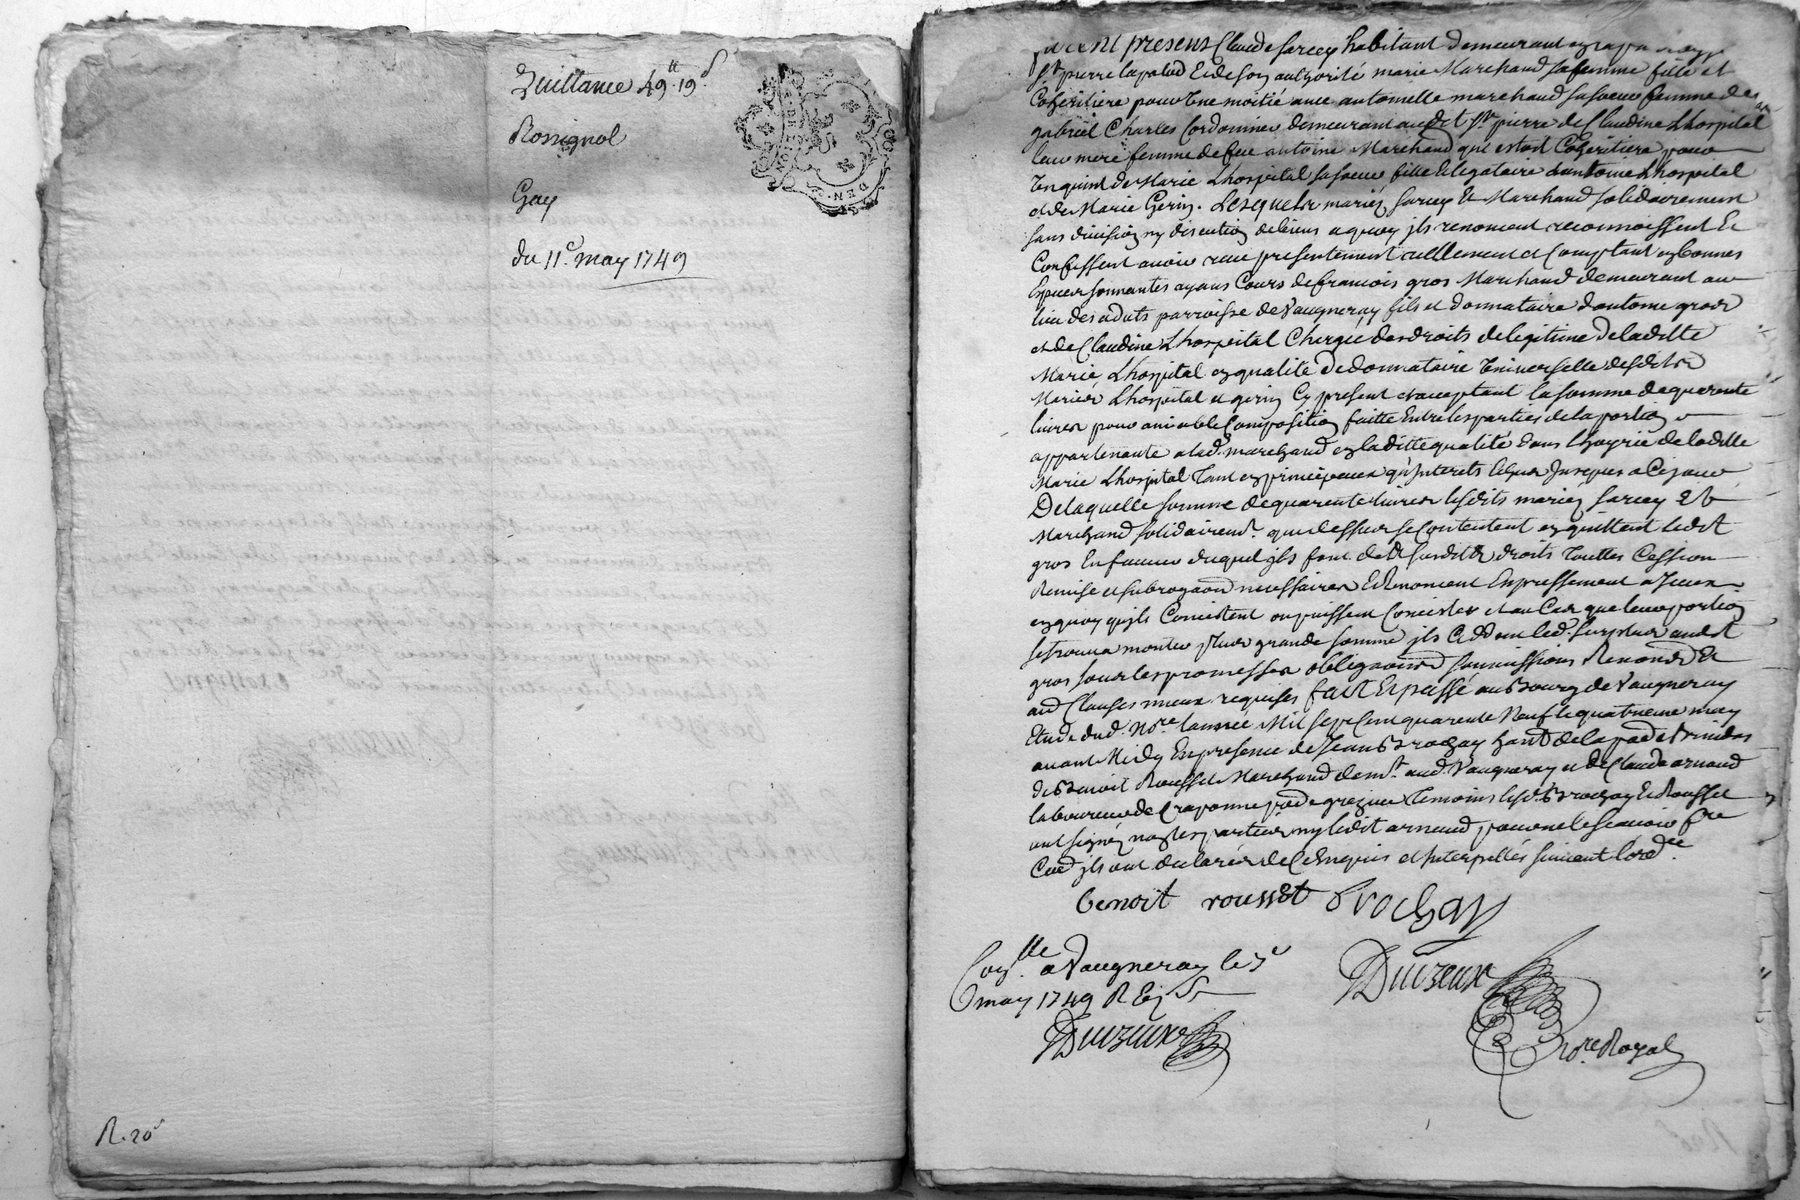 Quittance 49tt 19s
Rossignol
Gay
du 11e. may 1749
R. 20s
furent presents Claude farcy habitant demeurant
St pierre lapalud Et de soy authorité marie Marchand sa femme fille et
Coheritiere pour Une moitié avec anthoinette marchand sa soeur femme de
gabriel Charles Cordonnier demeurant audit St pierre de Claudine Lhospital
leur mere femme de feu antoine Marchand qui estoit Coheritiere pour
Un quint de Marie Lhospital sa soeur fille et legataire d'antoine Lhospital
et de Marie Gerin. Lesquels mariéz farcy Et Marchand solidairement
sans division ny discution de biens a quoy ils renoncent reconnoissent Et
Confessent avoir receu presentement reellement et Comptant en bonnes
Especes sonnantes ayans Cours de francois gros Marchand demeurant au
lieu des aduts parroisse de Vaugneray fils et donnataire d'antoine gros
et de Claudine Lhospital Chargée des droits de legitime de laditte
Marie Lhospital en qualité de donnataire Universelle desdits
Mariés Lhospital et gerin Cy present et acceptant la somme de quarente
livres pour amiable Composition faitte Entre les parties de la portion
appartenante a lad. marchand en laditte qualité dans L'hoyrie de laditte
Marie Lhospital Tant en principaux qu'Interets Echus Jusques a Ce jour
De laquelle somme de quarente livres lesdits mariéz farcy Et
Marchand solidairemt. que dessus se Contentent en quittent ledit
gros En faveur duquel ils font desdts susdits droits Touttes Cession
Remise et subrogaon necessaires Et Renoncent Expressement a Iceux
en quoy qu'ils Consistent ou puissent Consister et au Cas que leur portion
se trouva monter plus grande somme ils Cedent led. surplus audit
gros sous les promesses obligaons soumissions Renonons Et
aud Clauses mieux requises fait Et passé au Bourg de Vaugneray
Etude dud. Nore. l'année Mil sept Cent quarente Neuf le quatrieme may
avant Midy En presence de Jean Brochay
de Benoit Rousset Marchand demt. aud. Vaugneray et de Claude arnaud
laboureur de Craponne psse de grezieu Temoins lesd. Brochay Et Rousset
ont signéz non les parties ny ledit arnaud pour ne le scavoir fre
Cõe ils ont declarés de Ce Enquis et Interpellés suivant l'ordce.
benoit rousset Brochay
Conlle. a Vaugneray le 7e
may 1749 R
Duizeux
Duizeux
Nore Royal